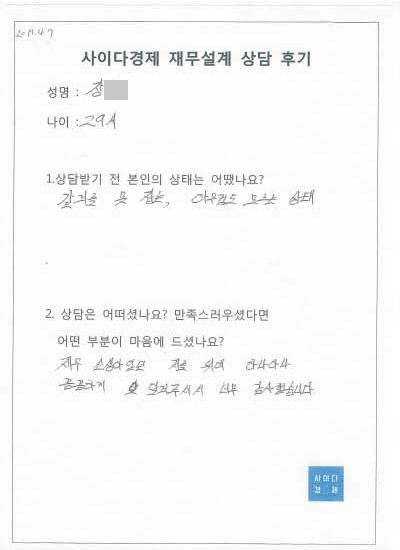 2019.4.7
사이다경제 재무설계 상담 후기
성명 : 장
나이 : 29세
1.상담받기 전 본인의 상태는 어땠나요?
갈피를 못 잡는, 아무것도 모르는 상태
2. 상담은 어떠셨나요? 만족스러우셨다면
어떤 부분이 마음에 드셨나요?
재무 위해 하나하나
꼼꼼하게 잘 알려주셔서 너무 감사했습니다
사이다
경제